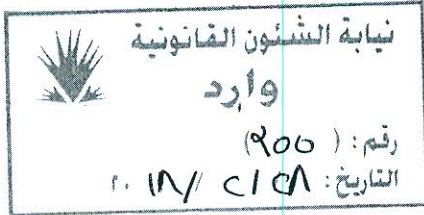 نيابة الشئون القانونية
وارد
رقم: (٩٥٥)
التاريخ: ٢٨/٢/٢٠١٨